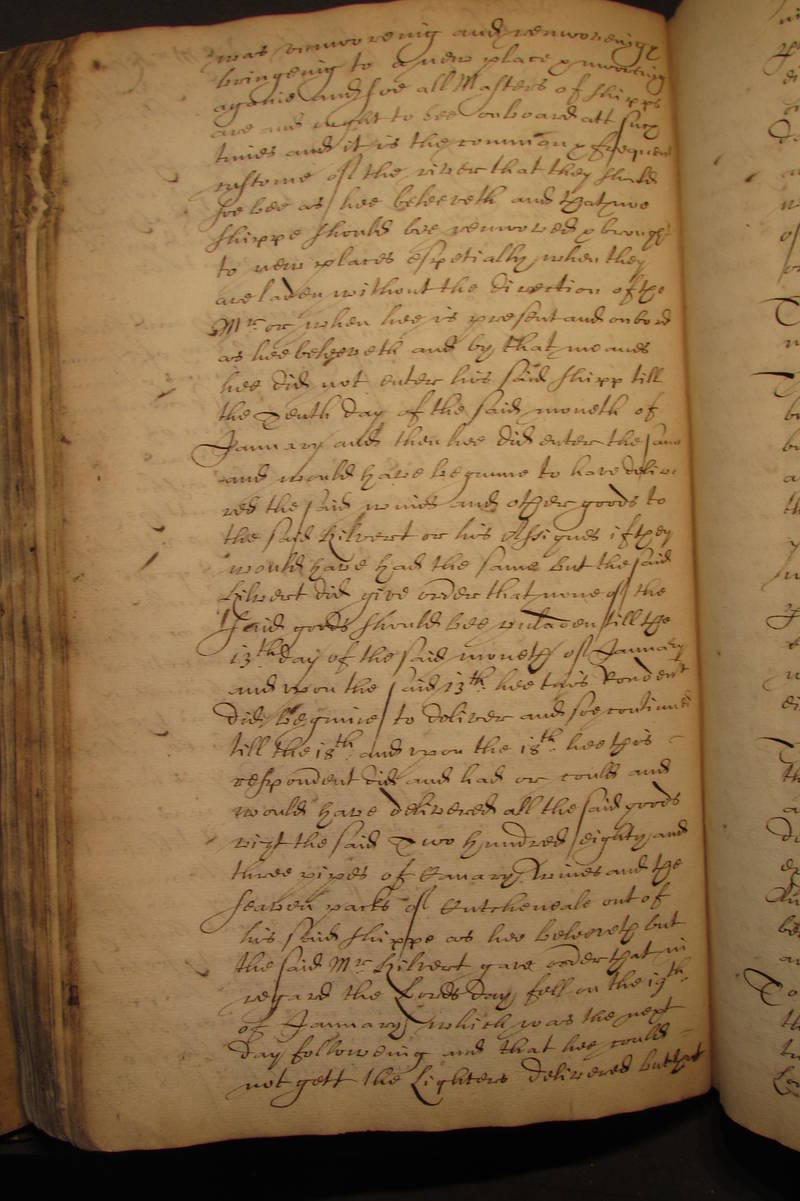 was remooveing and remooveinge
bringeing to a new place & mooreing
againe and soe all Masters of shipps
are and ought to bee onboard att such
times and it is the common & frequent
custome of the river that they should
soe bee as hee beleeveth and that noe
shippe should bee remooved & brought
to new places espetially when they
are laden without the direction of the
Mr: or when hee is present and onbord
as hee beleeveth and by that meanes
hee did not enter his said shipp till
the Tenth day of the said moneth of
January and then hee did enter the same
and would have begunne to have delive
red the said wines and other goods to
the said Hilvert or his Assignes if they
would have had the same but the said
Hilvert did give order that none of the
said goods should bee unladen till the
13th day of the said moneth of January
and upon the said 13th: hee this Rondent
did beginne to deliver and soe continued
till the 18th: and upon the 18th: hee this
respondent did and had or could and
would have delivered all the said goods
vizt the said Two hundred eighty and
three pipes of Canary Wines and the
seaven packs of Cutcheneale out of
his said shippe as hee beleeveth but
the said Mr: Hilvert gave order that in
regard the Lords day fell on the 19th:
of January which was the next
day followeing and that hee could
not gett the Lighters delivered but that